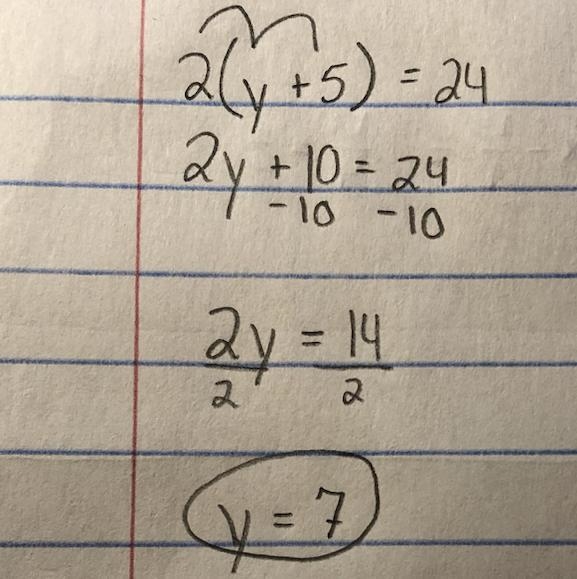 2(y + 5) = 24
2y + 10 = 24
-10 -10
2y = 14
2 2
y = 7